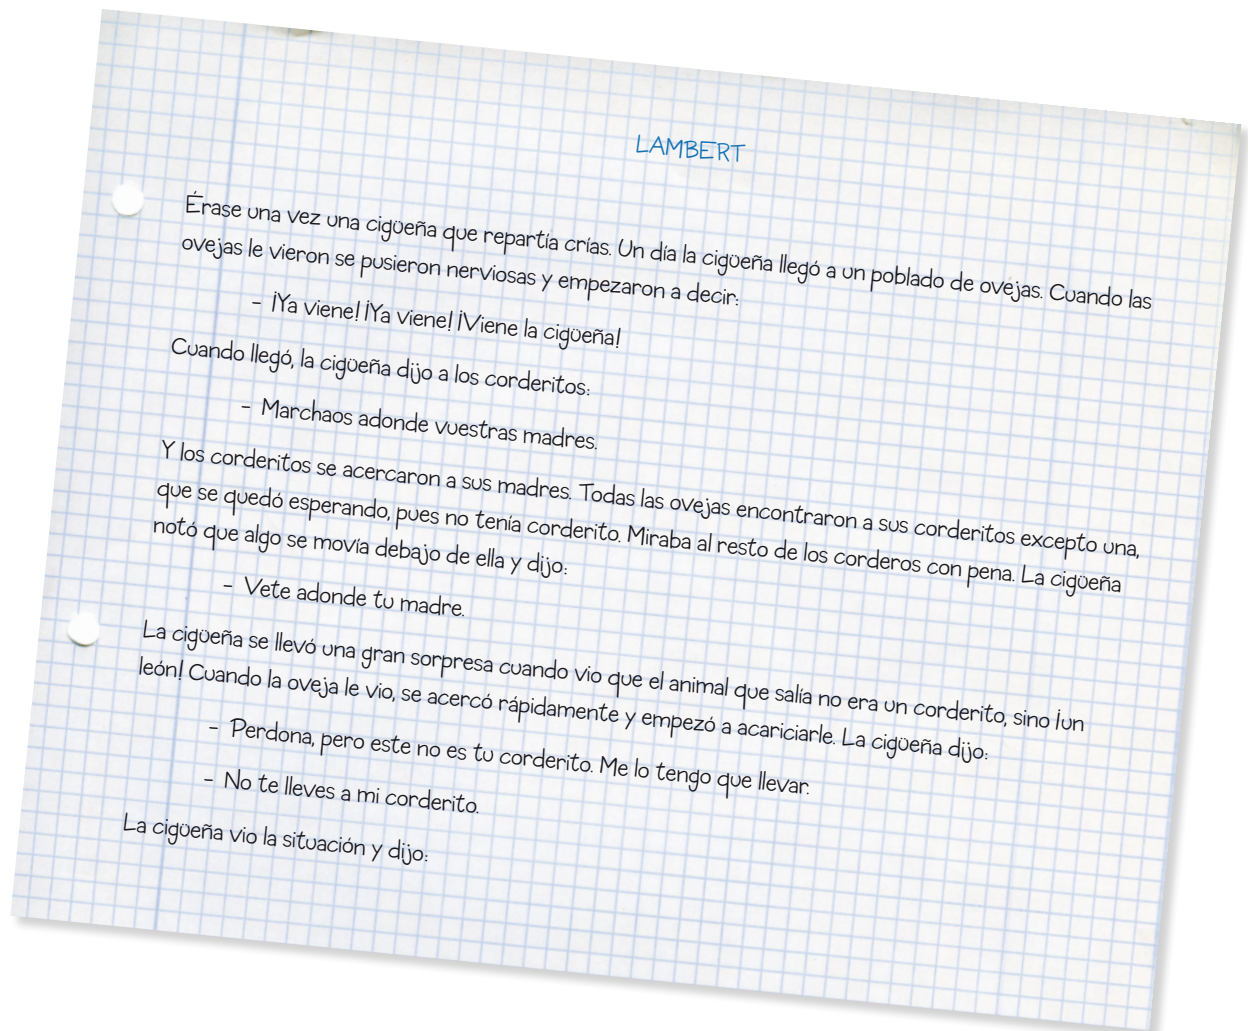 LAMBERT
Érase una vez una cigüeña que repartía crías. Un día la cigüeña llegó a un poblado de ovejas. Cuando las
ovejas le vieron se pusieron nerviosas y empezaron a decir:
- ¡Ya viene! ¡Ya viene! ¡Viene la cigüeña!
Cuando llegó, la cigüeña dijo a los corderitos:
- Marchaos adonde vuestras madres.
Y los corderitos se acercaron a sus madres. Todas las ovejas encontraron a sus corderitos excepto una,
que se quedó esperando, pues no tenía corderito. Miraba al resto de los corderos con pena. La cigüeña
notó que algo se movía debajo de ella y dijo:
- Vete adonde tu madre.
La cigüeña se llevó una gran sorpresa cuando vio que el animal que salía no era un corderito, sino ¡un
león! Cuando la oveja le vio, se acercó rápidamente y empezó a acariciarle. La cigüeña dijo:
- Perdona, pero este no es tu corderito. Me lo tengo que llevar.
- No te lleves a mi corderito.
La cigüeña vio la situación y dijo: